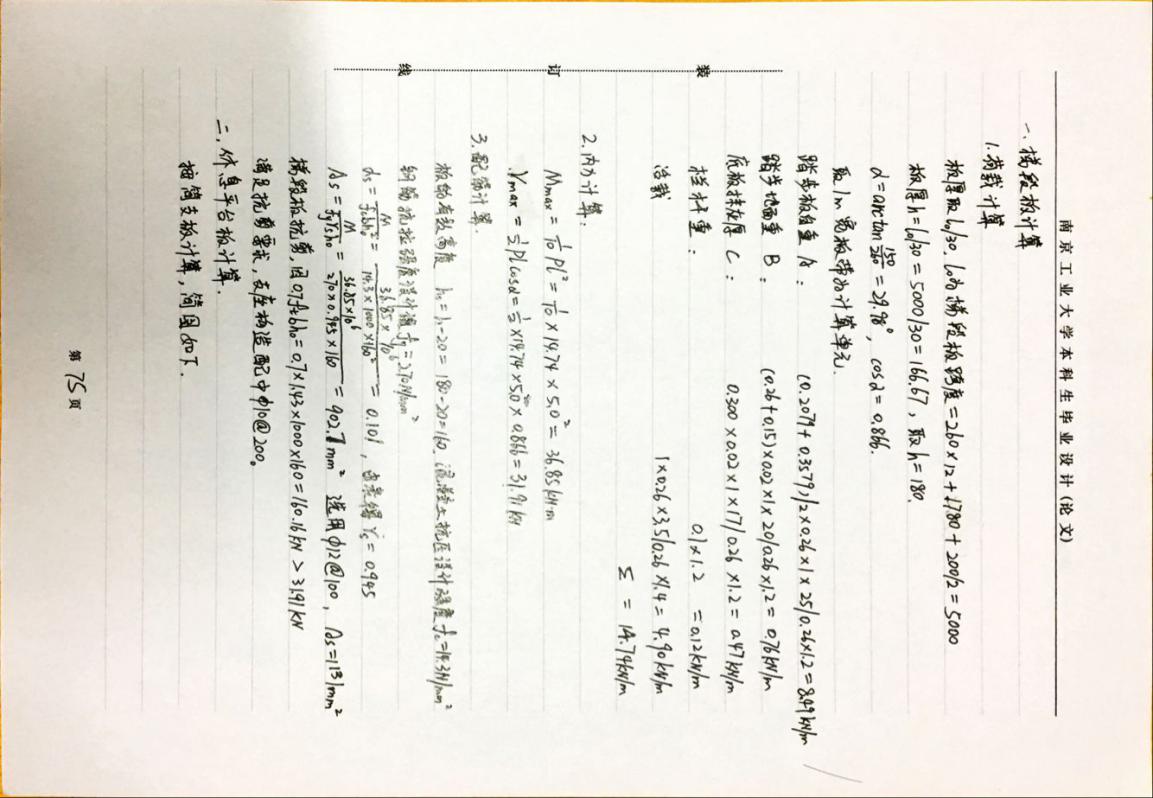 南京工业大学本科生毕业设计(论文)
一、梯段板计算
1.荷载计算
板厚取l₀/30,l₀为梯段板跨度=260×12+1780+200/2=5000
板厚h=l₀/30=5000/30=166.67,取h=180.
α=arctan 150/260=29.98°,cosα=0.866.
取1m宽板带为计算单元.
踏步板自重A: (0.2079+0.3579)/2×0.26×1×25/0.26×1.2=8.49kN/m
踏步地面重B: (0.26+0.15)×0.02×1×20/0.26×1.2=0.76kN/m
底板抹灰厚C: 0.300×0.02×1×17/0.26×1.2=0.47kN/m
栏杆重: 0.1×1.2=0.12kN/m
活载 1×0.26×3.5/0.26×1.4=4.90kN/m
Σ=14.74kN/m
2.内力计算:
Mmax=1/10 pl²=1/10×14.74×5.0²=36.85kN·m
Vmax=1/2 plcosα=1/2×14.74×5.0×0.866=31.91kN
3.配筋计算.
板的有效高度 h₀=h-20=180-20=160 混凝土抗压设计强度fc=14.3N/mm²
钢筋抗拉强度设计值fy=270N/mm²
αs=M/fcbh₀²=36.85×10⁶/14.3×1000×160²=0.101,查表得γs=0.945
As=M/fyγsh₀=36.85×10⁶/270×0.945×160=902.7mm² 选用φ12@100,As=1131mm²
梯段板抗剪,因0.7ftbh₀=0.7×1.43×1000×160=160.16kN>31.91kN
满足抗剪要求,支座构造配中φ10@200。
二、休息平台板计算.
按简支板计算,简图如下.
第 75 页
装
订
线